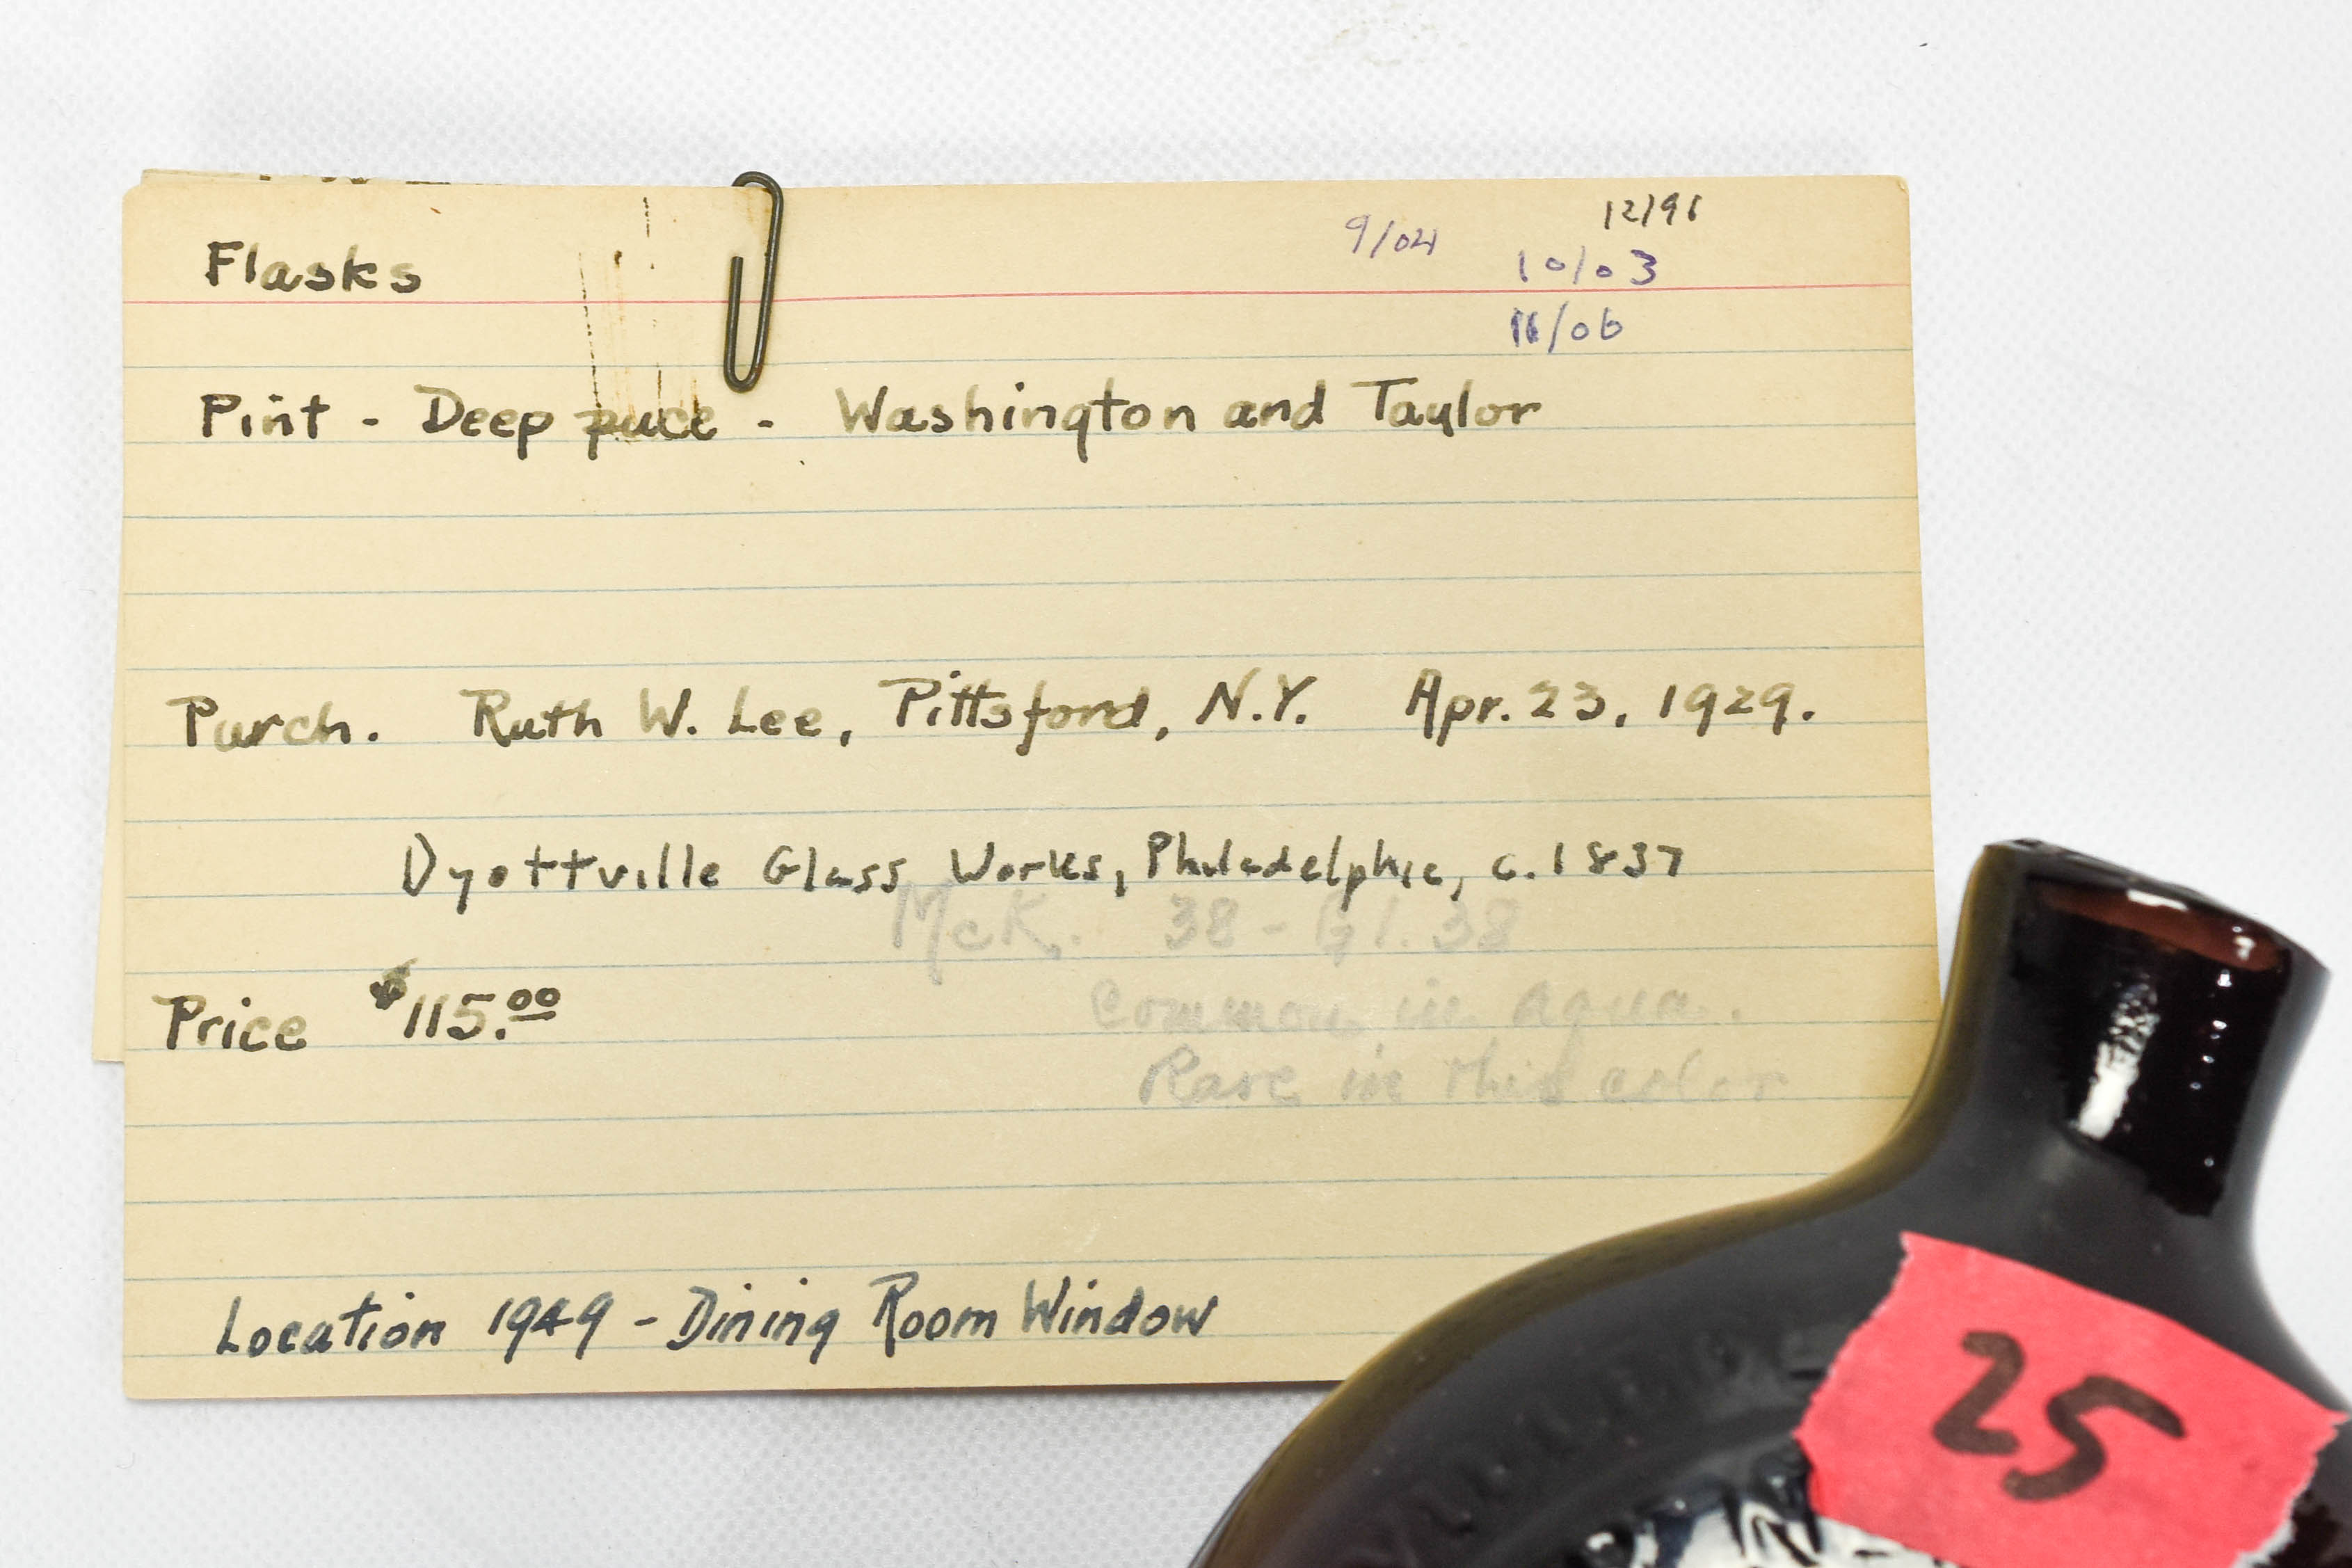 12/91
9/04
10/03
Flasks
11/06
Pint - Deep puce - Washington and Taylor
Purch. Ruth W. Lee, Pittsford, N.Y. Apr. 23, 1929.
Dyottville Glass Works, Philadelphia, c. 1837
McK. 38 - G1. 38
Price $115.00
Common in aqua.
Rare in this color
Location 1949 - Dining Room Window
25